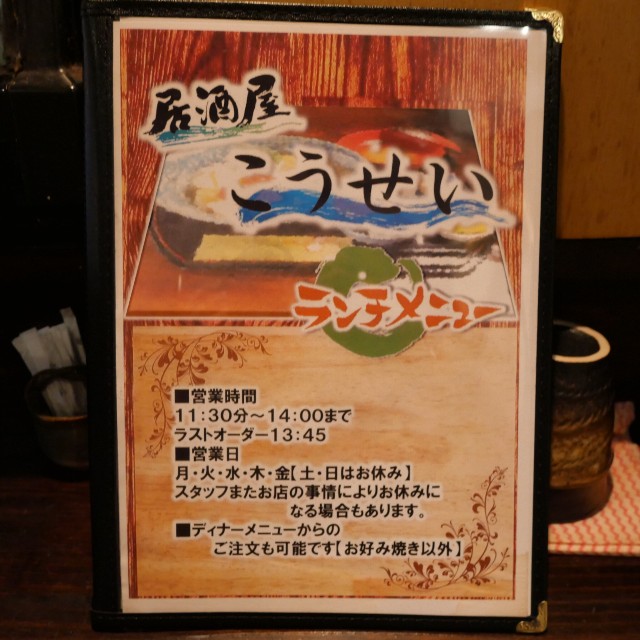 居酒屋
こうせい
ランチメニュー
■営業時間
11:30分～14:00まで
ラストオーダー13:45
■営業日
月・火・水・木・金【土・日はお休み】
スタッフまたお店の事情によりお休みに
なる場合もあります。
■ディナーメニューからの
ご注文も可能です【お好み焼き以外】